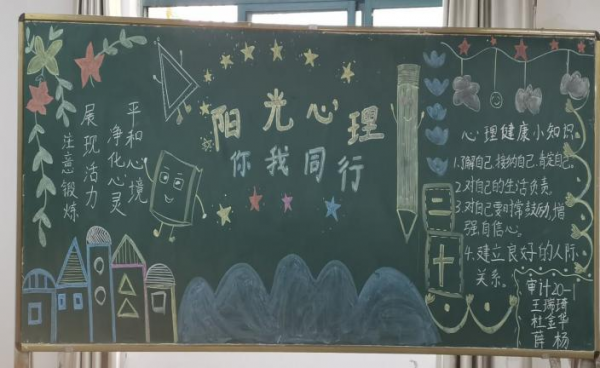 平和心境
净化心灵
展现活力
注意锻炼
阳光心理
你我同行
心理健康小知识
1.了解自己,接纳自己,肯定自己。
2.对自己的生活负责
3.对自己要时常鼓励,增
强自信心。
4.建立良好的人际
关系。
审计20-1
王瑞琦
杜金华
薛 杨